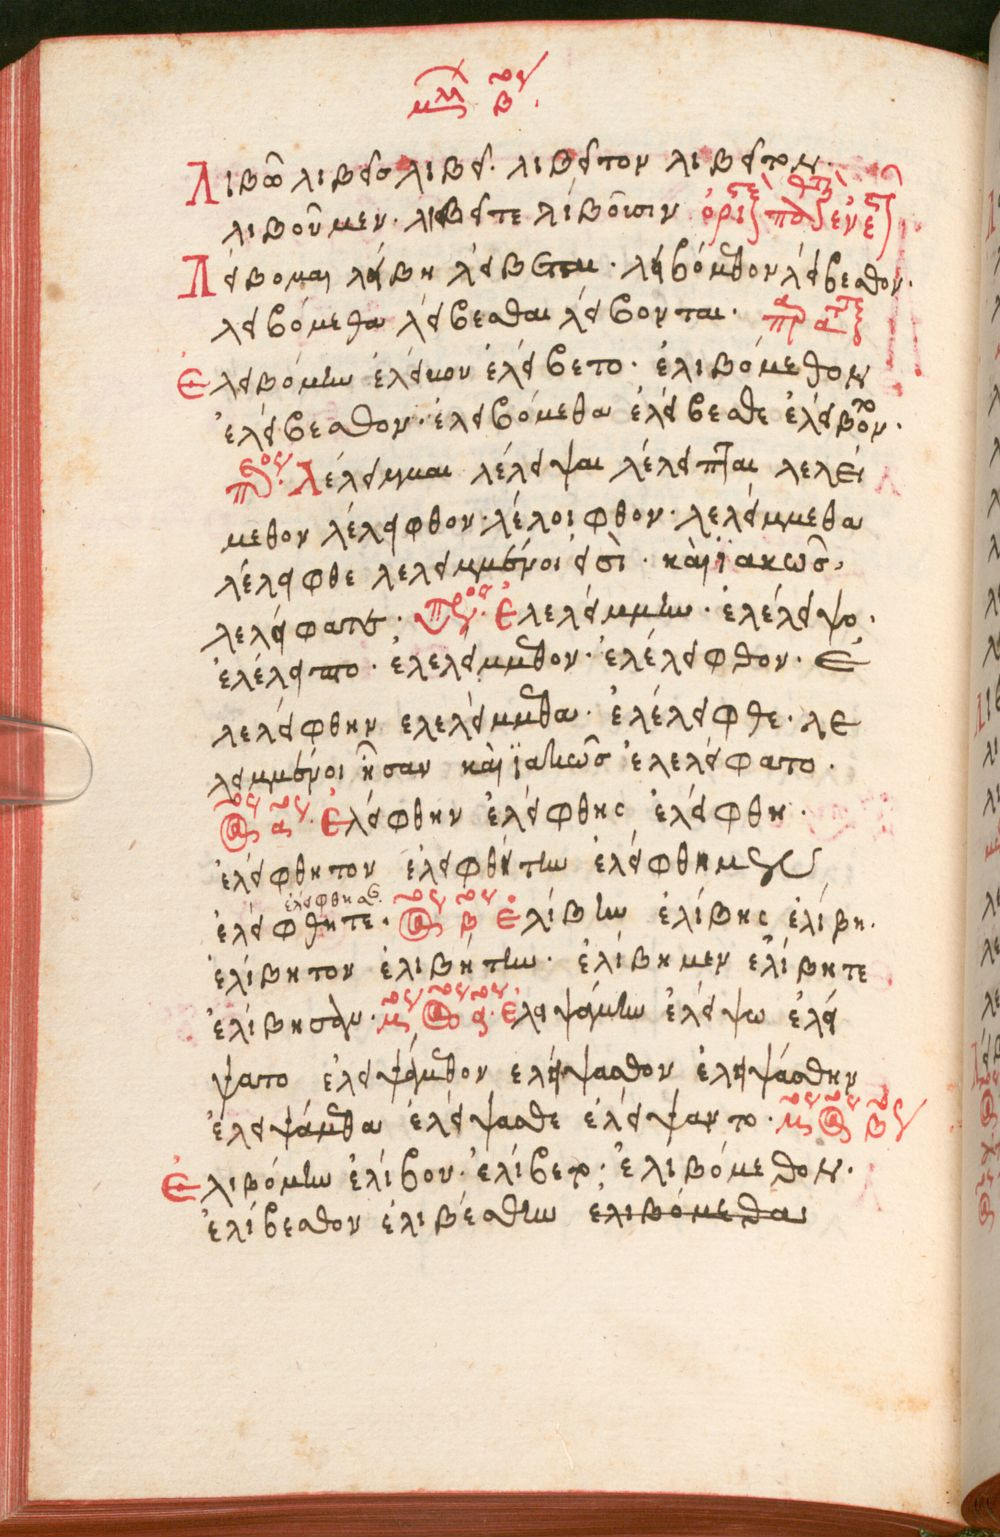 μέλλ β
Λιβῶ λιβεῖς λιβεῖ. λιβεῖτον λιβεῖτον.
λιβοῦμεν. λιβεῖτε λιβοῦσιν ὁρισ παθ ἐνεσ
Λείβομαι λείβη λείβεται. λειβόμεθον λείβεσθον.
λειβόμεθα λείβεσθαι λείβονται. παρατ
Ἐλειβόμην ἐλείβου ἐλείβετο. ἐλιβόμεθον
ἐλείβεσθον. ἐλειβόμεθα ἐλείβεσθε ἐλείβοντο.
Λέλειμμαι λέλειψαι λέλειπται λελεί
μεθον λέλειφθον. λέλοιφθον. λελείμμεθα
λέλειφθε λελειμμένοι εἰσὶ. καὶ ϊακῶς,
λελείφαται. Ἐλελείμμην. ἐλέλειψο.
ἐλέλειπτο. ἐλελείμμεθον. ἐλέλειφθον. ἐ
λελείφθην ἐλελείμμεθα. ἐλέλειφθε. λε
λειμμένοι ἦσαν καὶ ϊακῶς ἐλελείφατο.
α Ἐλείφθην ἐλείφθης ἐλείφθη.
ἐλείφθητον ἐλειφθήτην ἐλείφθημεν
ἐλείφθησαν
ἐλείφθητε. β Ἐλίβην ἐλίβης ἐλίβη.
ἐλίβητον ἐλιβήτην. ἐλίβημεν ἐλίβητε
ἐλίβησαν. μς α Ἐλειψάμην ἐλείψω ἐλεί
ψατο ἐλειψάμεθον ἐλείψασθον ἐλειψάσθην
ἐλειψάμεθα ἐλείψασθε ἐλείψαντο. μς β
Ἐλιβόμην ἐλίβου. ἐλίβετο. ἐλιβόμεθον.
ἐλίβεσθον ἐλιβέσθην ἐλιβόμεθα